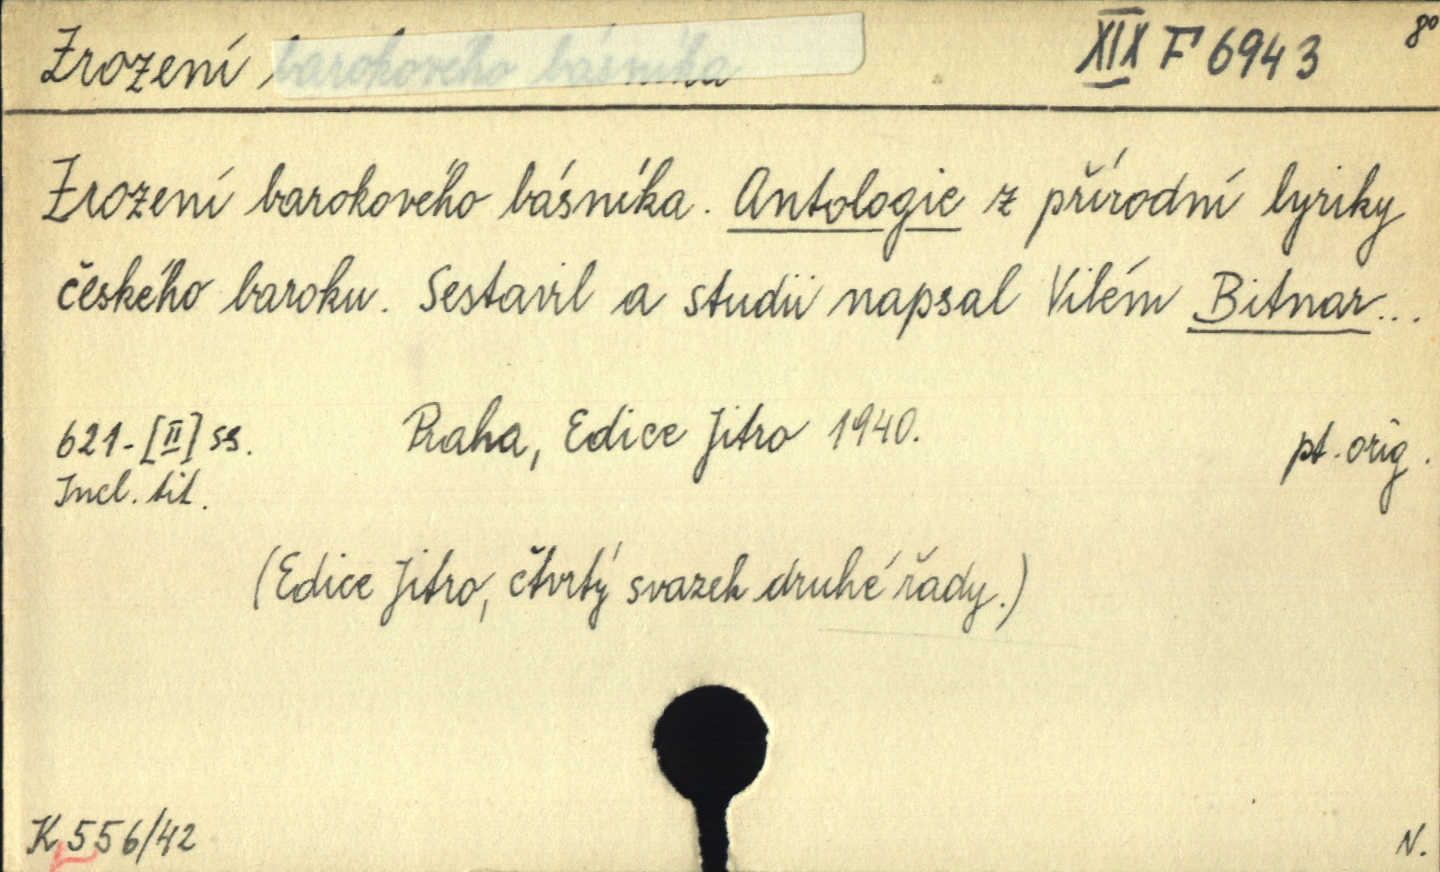 Zrození barokového básníka XIX F 6943 8°
Zrození barokového básníka. Antologie z přírodní lyriky
českého baroku. Sestavil a studii napsal Vilém Bitnar...
621-[II] ss. Praha, Edice Jitro 1940. pt. orig.
Incl. tit.
(Edice Jitro, čtvrtý svazek druhé řady.)
K 556/42 N.